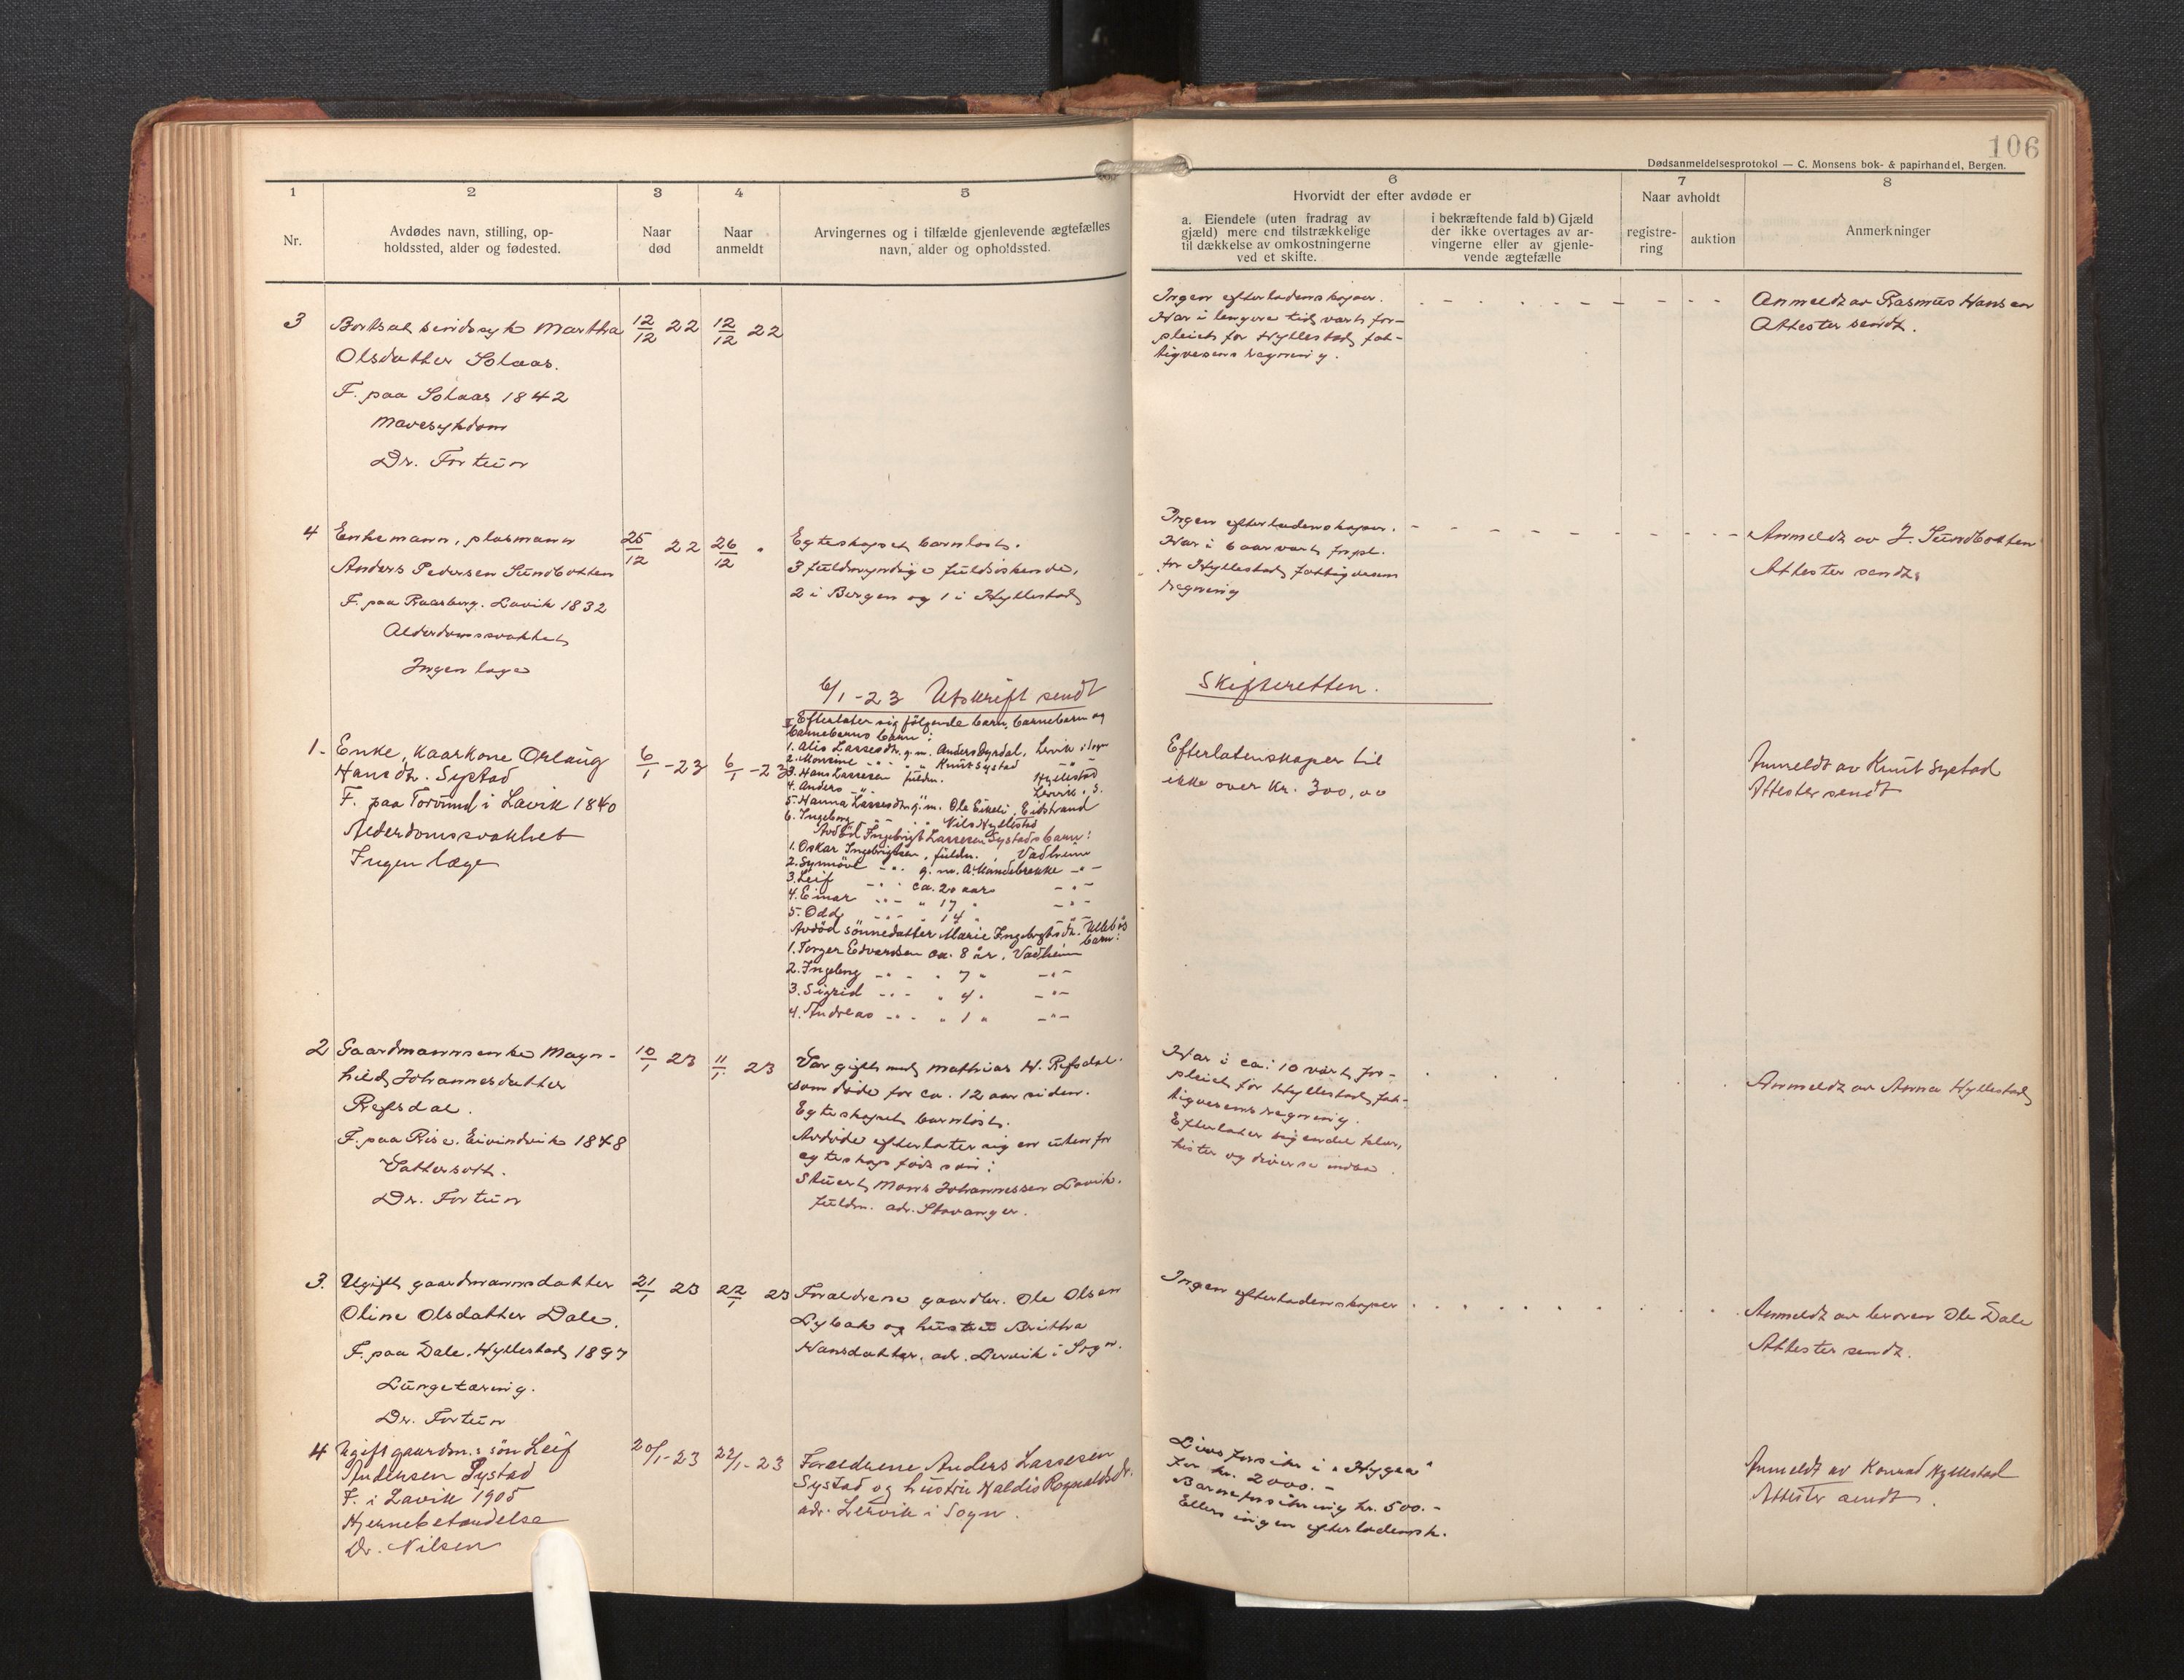 106
Dødsanmeldelsesprotokol — C. Monsens bok- & papirhandel, Bergen.
1
2
3
4
5
6
7
8
Nr.
Avdødes navn, stilling, op-
holdssted, alder og fødested.
Naar
død
Naar
anmeldt
Arvingernes og i tilfælde gjenlevende ægtefælles
navn, alder og opholdssted.
Hvorvidt der efter avdøde er
a. Eiendele (uten fradrag av
gjæld) mere end tilstrækkelige
til dækkelse av omkostningerne
ved et skifte.
i bekræftende fald b) Gjæld
der ikke overtages av ar-
vingerne eller av gjenle-
vende ægtefælle
Naar avholdt
registre-
ring
auktion
Anmerkninger
3
sindssyk Martha
Olsdatter Solaas.
F. paa Solaas 1842
Mavesykdom
Dr. Fortun
12/12 22
12/12 22
Ingen efterladenskaper.
Har i lengere tid vært for-
pleiet for Hyllestad fat-
tigvesens regning.
Anmeldt av Rasmus Hansen
Attester sendt.
4
Enkemann, plasmann
Anders Pedersen Sundbotten
F. paa Raasberg. Lavik 1832
Alderdomssvakhet
Ingen læge
25/12 22
26/12 "
Egteskapet barnløst.
3 fuldmyndige fuldsøskende,
2 i Bergen og 1 i Hyllestad
Ingen efterladenskaper.
Har i 6 aar vært forpl.
for Hyllestad fattigvesens
regning
Anmeldt av J. Sundbotten
Attester sendt.
6/1-23 Utskrift sendt
Skifteretten.
1.
Enke, kaarkone Orlaug
Hansdtr. Systad
F. paa Torvund i Lavik 1840
Alderdomssvakhet
Ingen læge
6/1-23
6/1-23
Efterlater sig følgende barn, barnebarn og
barnebarns barn:
1. Alis Lassesdtr. g.m. Anders Dyrdal, Lervik i Sogn
2. Monsine -"- " " Knut Systad -"-
3. Hans Lassesen fuldm. Hyllestad
4. Anders -"- Lervik i S.
5. Hanna Lassesdtr. g.m. Ole Eikeli, Eidstrand
6. Ingeborg -"- " " Nils Hyllestad
Avdød Ingebrigt Lassesen Systads barn:
1. Oskar Ingebrigtsen, fuldm., Vadheim
2. Synnöve -"- g.m. A. Mandebrekke -"-
3. Leif -"- ca. 20 aar -"-
4. Einar -"- " 17 " -"-
5. Odd -"- " 14 " -"-
Avdöd sönnedatter Marie Ingebrigtsdtr. Ullebös
barn:
1. Torger Edvardsen ca. 8 år, Vadheim
2. Ingeborg -"- " 7 " -"-
3. Sigrid -"- " 4 " -"-
4. Andreas -"- " 1 " -"-
Efterlatenskaper til
ikke over kr. 300,00
Anmeldt av Knut Systad
Attester sendt
2
Gaardmannsenke Magn-
hild Johannesdatter
Refsdal.
F. paa Risc. Eivindvik 1848
Vattersott.
Dr. Fortun
10/1 23
11/1 23
Var gift med Mathias H. Refsdal
som døde for ca. 12 aar siden.
Egteskapet barnløst.
Avdøde efterlater sig en uten for
egteskap født søn:
Stuert Mons Johannessen Lavik.
fuldm. adr. Stavanger.
Har i ca. 10 vært for-
pleiet for Hyllestad fat-
tigvesens regning.
Efterlater sig endel klær,
kister og diverse indbo.
Anmeldt av Anna Hyllestad
3.
Ugift gaardmannsdatter
Oline Olsdatter Dale.
F. paa Dale. Hyllestad 1897
Lungetæring.
Dr. Fortun
21/1 23
22/1 23
Forældrene gaardbr. Ole Olsen
Lybak og hustru Brithe
Hansdatter, adr. Lervik i Sogn.
Ingen efterladenskaper
Anmeldt av broren Ole Dale
Attester sendt.
4
Ugift gaardm.s sön Leif
Andersen Systad
F. i Lavik 1905
Hjernebetændelse
Dr. Nilsen
20/1-23
22/1-23
Foreldrene Anders Lassesen
Systad og hustru Haldis Ragnvaldsdr.
adr. Lervik i Sogn.
Livsforsikr. i "Hygea"
for kr. 2000.-
Barneforsikring kr. 500.-
Ellers ingen efterladensk.
Anmeldt av Konrad Hyllestad
Attester sendt.